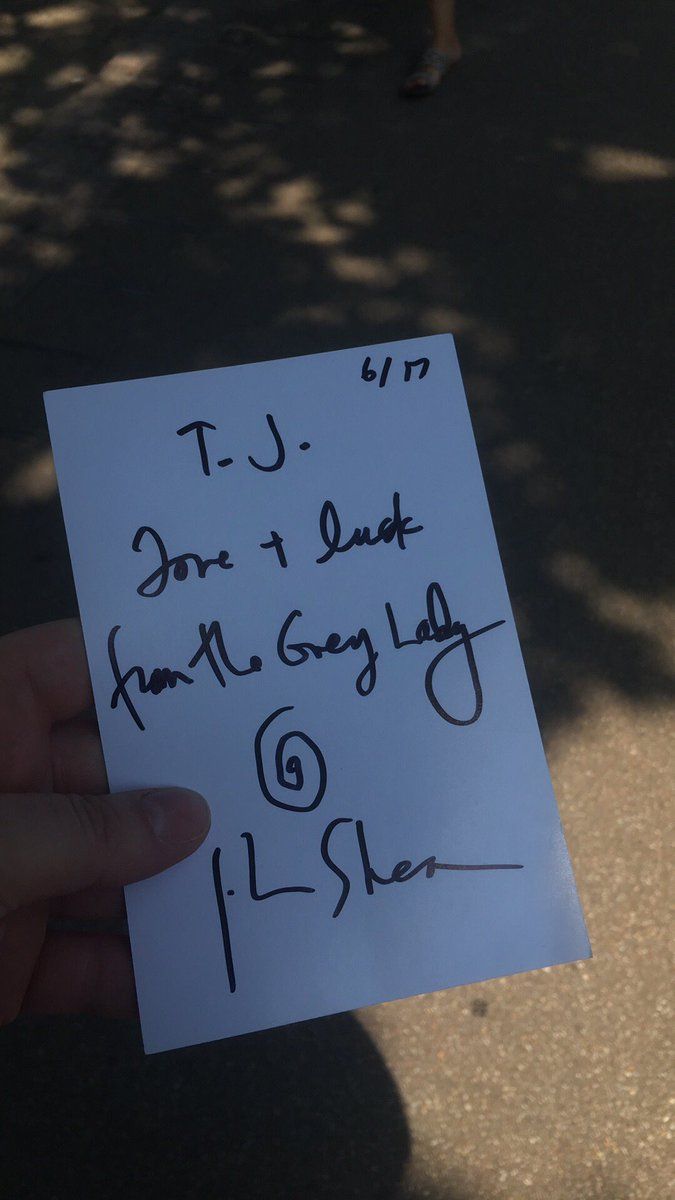 6/17
T.J.
Love + luck
from the Grey Lady
J.L Shen